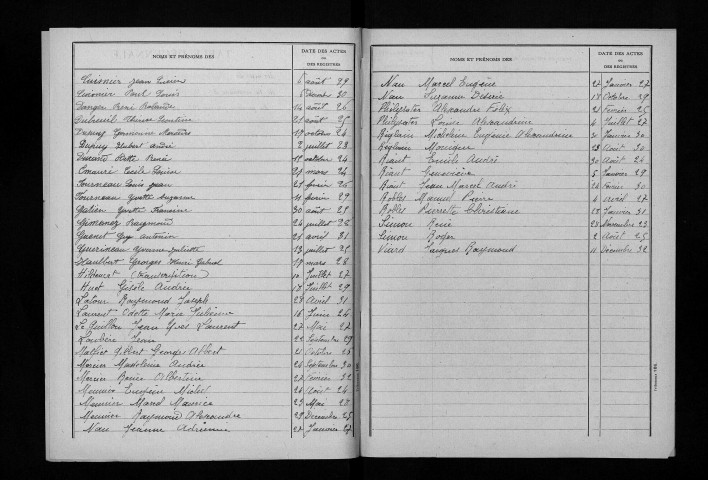 NOMS ET PRÉNOMS DES
DATE DES ACTES
OU
DES REGISTRES
Cuisnier Jean Lucien 6 août 29
Cuisinier Paul Louis Décembre 30
Danger René 14 août 26
Dubreuil Thérèse 21 août 25
Dupuy 17 octobre 24
Dupuy André 2 juillet 23
Durand Odette Renée 18 octobre 24
Cécile Louise 27 mars 24
Fourneau Louis Jean 25 février 26
Fourneau Yvette Suzanne 11 février 29
Yvette Francine 30 août 25
Gimenez Raymond 24 juillet 28
Guenet Guy Antonin 21 avril 31
Guerineau Yvonne Juliette 13 juillet 25
Haulbert Georges Henri Gabriel 17 mars 28
(transcription) 10 Juillet 27
Huet Gisèle Andrée 18 Juillet 29
Latour Raymond Joseph 28 Avril 31
Laurent Odette Marie 16 Juin 24
Le Guillou Jean Yves Laurent 27 Mai 27
Loubère Jean 22 Septembre 29
Mathier Albert Georges Albert 21 Octobre 25
Mercier Madeleine Andrée 24 Septembre 30
Mercier Renée Albertine 27 Février 32
Meunier Eugène Michel 26 Août 24
Meunier Marcel Maurice 23 Mai 28
Meunier Raymond Alexandre 29 Décembre 25
Nau Jeanne Adrienne 27 Janvier 27
NOMS ET PRÉNOMS DES
DATE DES ACTES
OU
DES REGISTRES
Nau Marcel Eugène 27 Janvier 27
Nau Suzanne Désirée 18 Octobre 29
Philippeaux Alexandre Félix 21 Février 25
Louise Alexandrine 4 Juillet 27
Micheline Eugénie Alexandrine 31 Janvier 30
Monique 23 Août 30
Riant Emile André 30 Août 24
Riant Geneviève 5 Janvier 29
Riant Jean Marcel André 24 Février 30
Robles Manuel Pierre 4 Avril 27
Robles Pierrette Christiane 28 Janvier 31
Simon René 28 Novembre 23
Simon Roger 2 Août 25
Viard Jacques Raymond 11 Décembre 32